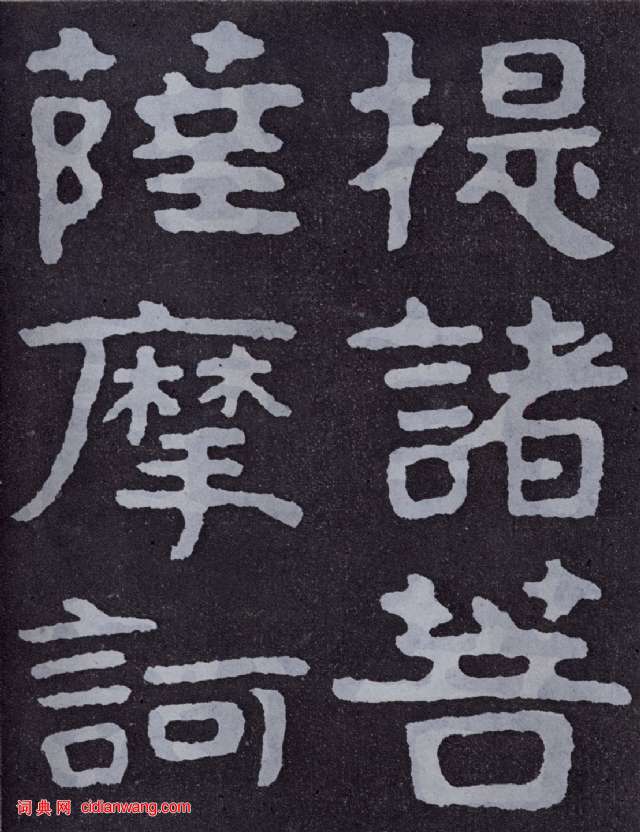 提諸菩
薩摩訶
词典网 cidianwang.com